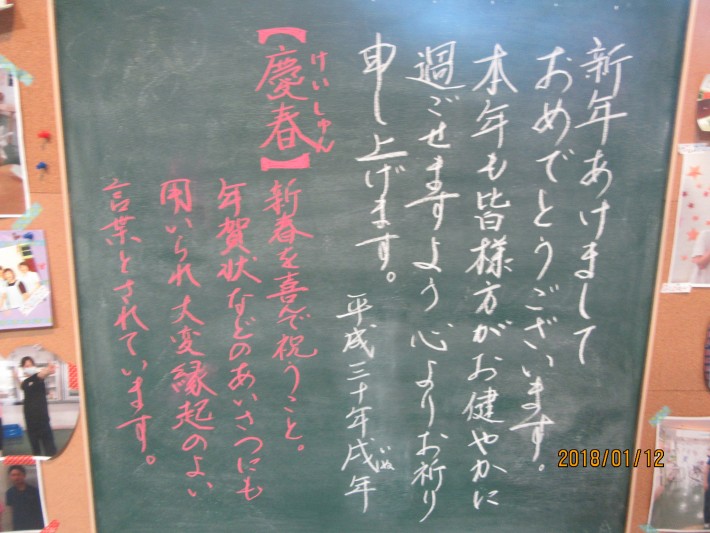 新年あけまして
おめでとうございます。
本年も皆様方がお健やかに
過ごせますよう 心よりお祈り
申し上げます。
平成三十年戌年
いぬ
けいしゅん
【慶春】新春を喜んで祝うこと。
年賀状などのあいさつにも
用いられ大変縁起のよい
言葉とされています。
2018/01/12